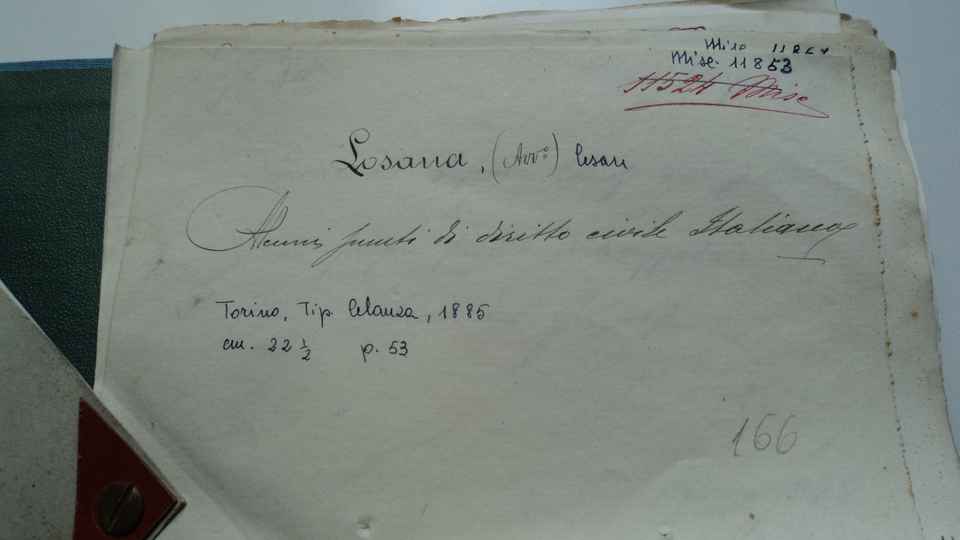 Misc. 11853
11524 Misc
Losana, (Avv.º) Cesare
Alcuni punti di diritto civile Italiano
Torino, Tip. Celanza, 1885
cm. 22 ½ p. 53
166